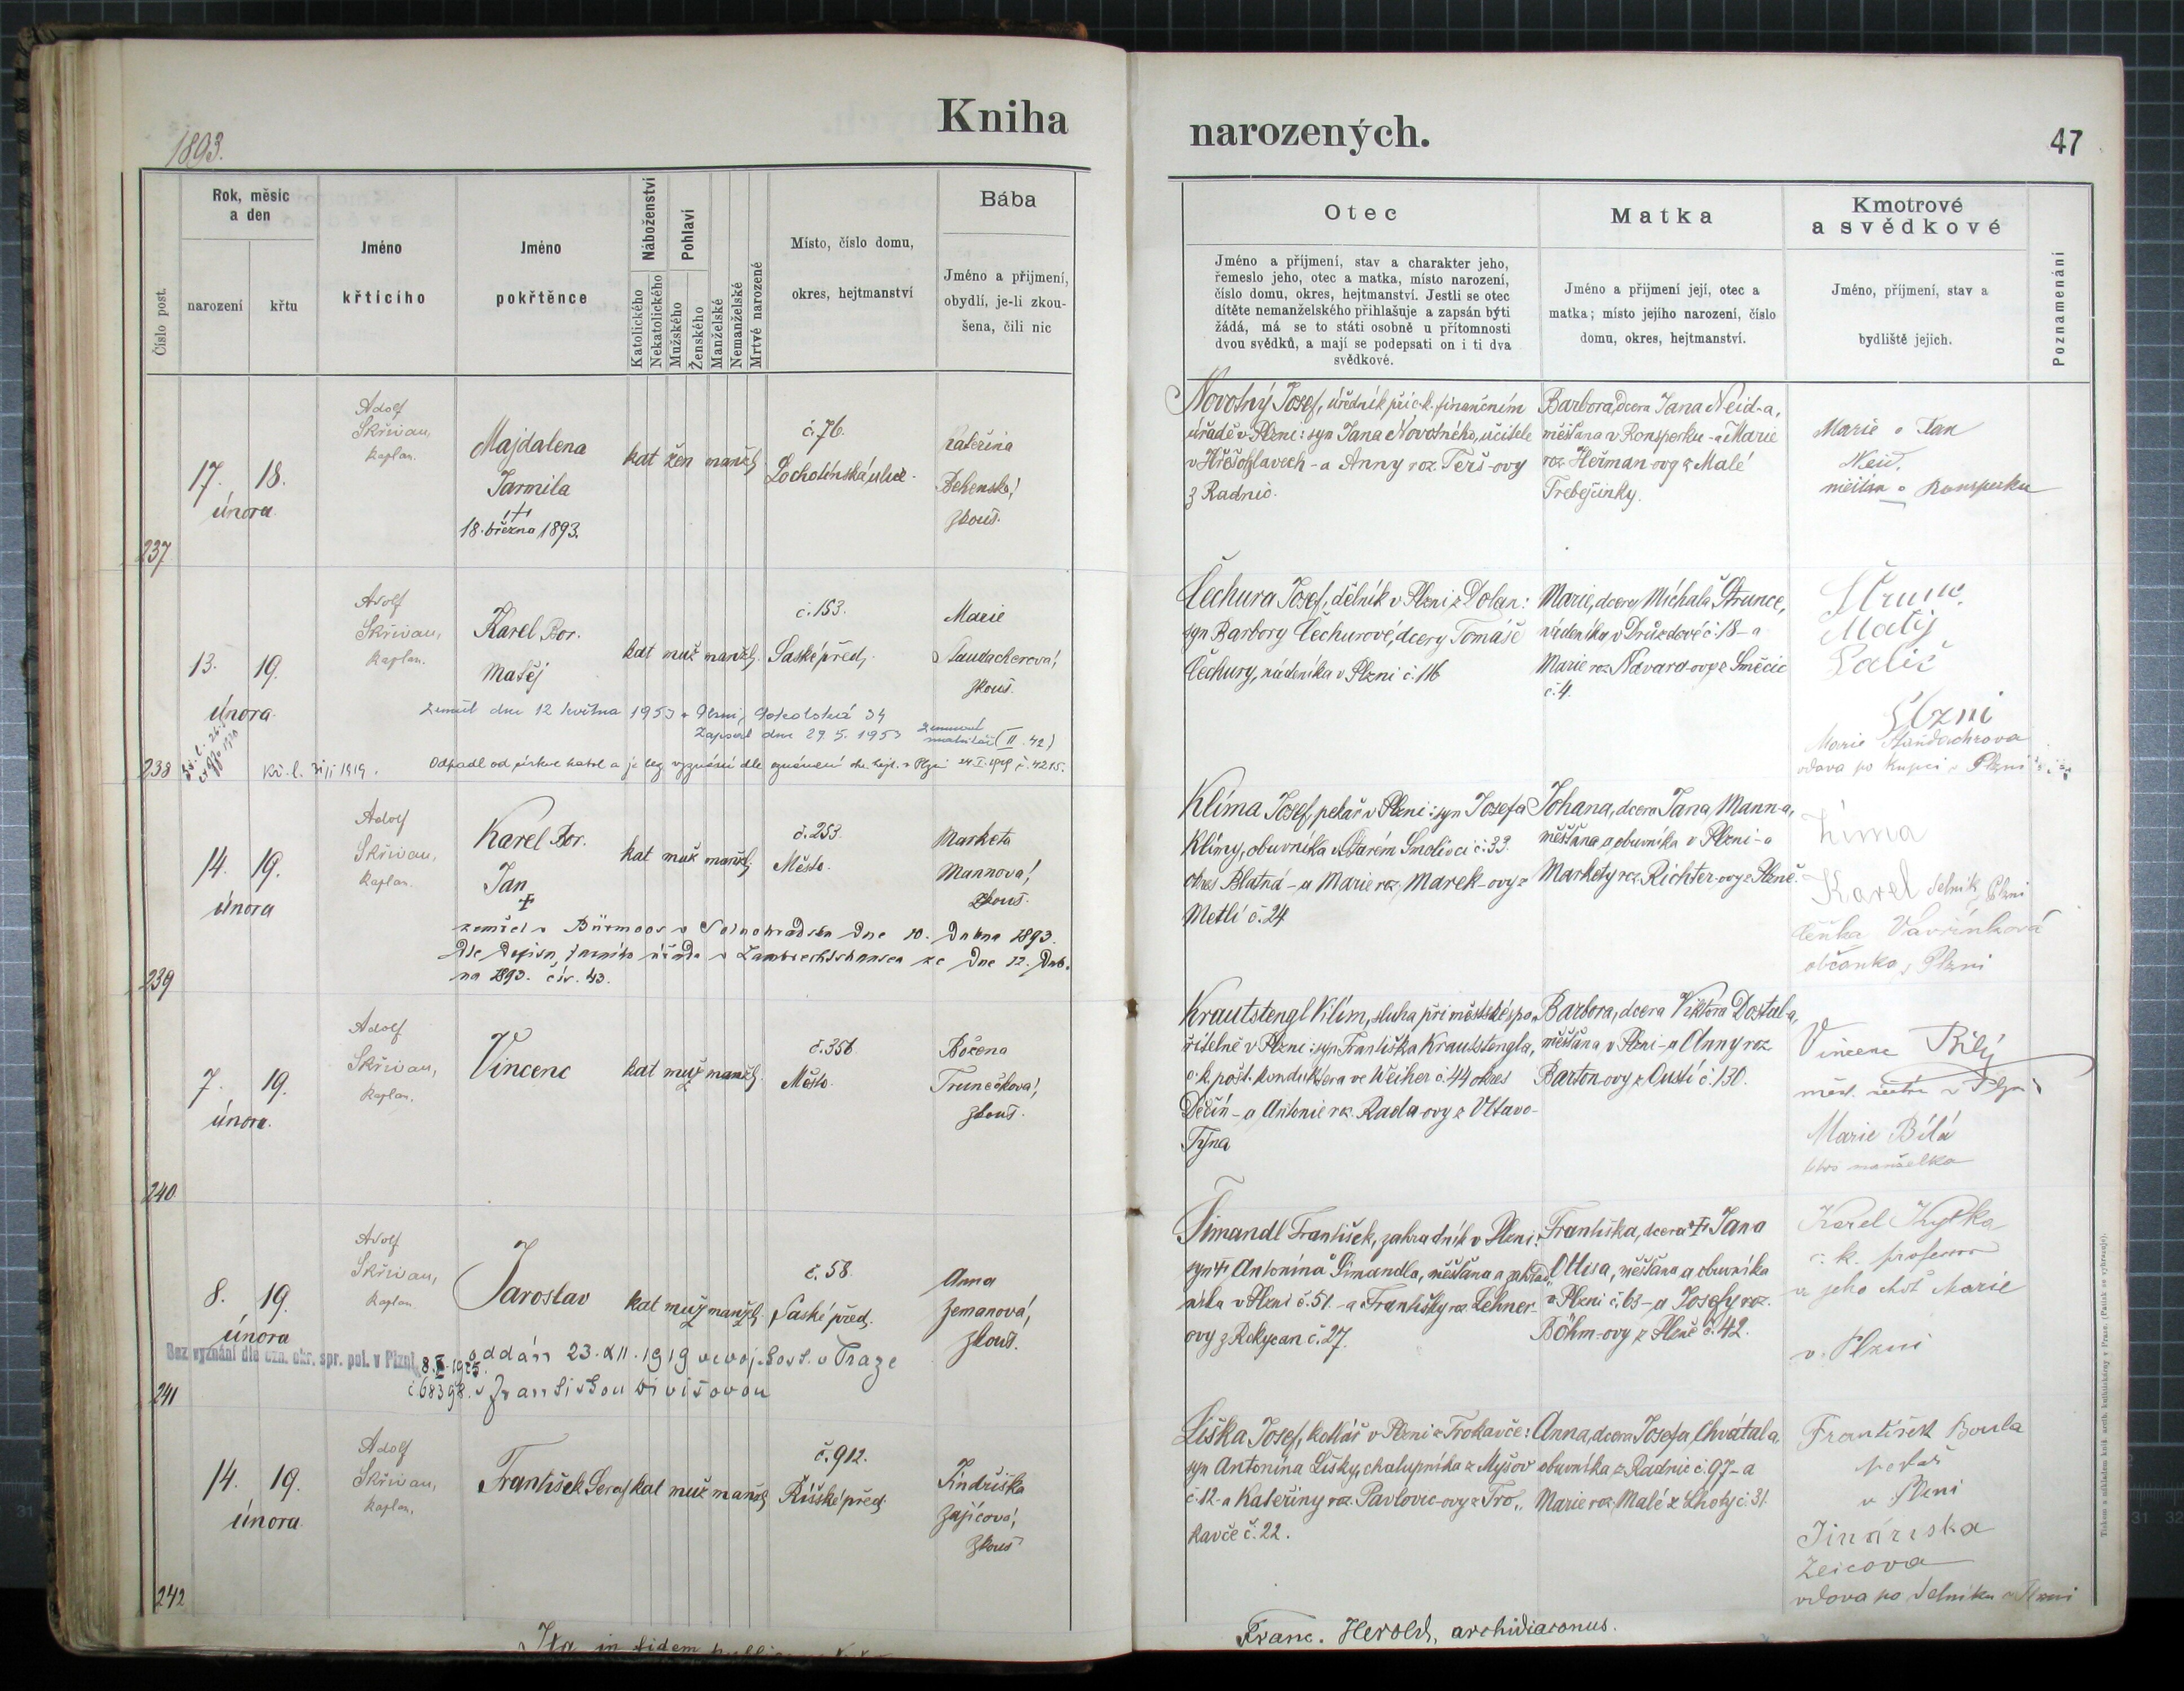 Kniha
narozených.
47
1893.
Číslo post.
Rok, měsíc
a den
narození
křtu
Jméno
křtícího
Jméno
pokřtěnce
Náboženství
Katolického
Nekatolického
Pohlaví
Mužského
Ženského
Manželské
Nemanželské
Mrtvě narozené
Místo, číslo domu,
okres, hejtmanství
Bába
Jméno a příjmení,
obydlí, je-li zkou-
šena, čili nic
Otec
Jméno a příjmení, stav a charakter jeho,
řemeslo jeho, otec a matka, místo narození,
číslo domu, okres, hejtmanství. Jestli se otec
dítěte nemanželského přihlašuje a zapsán býti
žádá, má se to státi osobně u přítomnosti
dvou svědků, a mají se podepsati on i ti dva
svědkové.
Matka
Jméno a příjmení její, otec a
matka; místo jejího narození, číslo
domu, okres, hejtmanství.
Kmotrové
a svědkové
Jméno, příjmení, stav a
bydliště jejich.
Poznamenání
237
17. 18.
února
Adolf
Skřivan,
kaplan.
Majdalena
Jarmila
†
18. března 1893.
kat žen manžs
č. 76.
Lochotínská ulice.
Kateřina
Bebenská,
zkouš.
Novotný Josef, úředník při c.k. finančním
úřadě v Plzni: syn Jana Novotného, učitele
v Hřešihlavech - a Anny roz. Terš-ovy
z Radnic.
Barbora, dcera Jana Neid-a,
měšťana v Ronsperku - a Marie
roz. Heřman-ovy z Malé
Trebešinky.
Marie a Jan
Neid,
měšťan v Ronsperku
238
13. 19.
února
Adolf
Skřivan,
kaplan.
Karel Bor.
Matěj
kat muž manžs.
č. 153.
Saské předs.
Marie
Saudacherová,
zkouš.
Zemřel dne 12 května 1953 v Plzni, Sokolská 34
Zapsal dne 29. 5. 1953
Kř. l. 1919.
Odpadl od církve katol a je bez vyznání dle oznámení okr. hejt. v Plzni 24.I.1919 č. 4215.
Čechura Josef, dělník v Plzni z Dolan:
syn Barbory Čechurové, dcery Tomáše
Čechury, nádeníka v Plzni č. 116
Marie, dcera Michala Strunce,
nádeníka v Druzdové č. 18 - a
Marie roz. Navara-ovy z Směčic
č. 4.
Strunc
Matěj
Plzni
vdova po kupci v Plzni
239
14. 19.
února
Adolf
Skřivan,
kaplan.
Karel Bor.
Jan
†
kat muž manžs.
č. 253.
Město.
Marketa
Mannova,
zkouš.
zemřel v Bürmoos v Solnohradsku dne 10. Dubna 1893.
Dle dopisu farního úřadu v Lambrechtshausen ze dne 12. Dub-
na 1893. čís. 43.
Klíma Josef, pekař v Plzni: syn Josefa
Klímy, obuvníka v Starém Smolivci č. 33.
okres Blatná - a Marie roz. Marek-ovy z
Metlí č. 24
Johana, dcera Jana Mann-a,
měšťana a obuvníka v Plzni - a
Markety roz. Richter-ovy z Plzně.
Karel dělník, Plzni
Vavřinková
občanka, Plzni
240
7. 19.
února.
Adolf
Skřivan,
kaplan.
Vincenc
kat muž manžs.
č. 356
Město.
Božena
Trunečkova,
zkouš.
Krautstengl Vilím, sluha při městské spo-
řitelně v Plzni: syn Františka Krautstengla,
c. k. pošt. konduktera ve Weiher č. 44 okres
Děčín - a Antonie roz. Rada-ovy z Vltavo-
Týna
Barbora, dcera Viktora Dostal-a,
měšťana v Plzni - a Anny roz
Barton-ovy z Oustí č. 130.
Vincenc Bílý
Marie Bílá
jeho manželka
241
8. 19.
února
Adolf
Skřivan,
kaplan
Jaroslav
kat muž manžs.
č. 58.
Saské před.
Anna
Zemanová,
zkouš.
Bez vyznání dle ozn. okr. spr. pol. v Plzni
oddán 23.XII.1919 ve voj. kost. v Praze
s Františkou Divišovou
Šimandl František, zahradník v Plzni:
syn † Antonína Šimandla, měšťana a zahrad-
níka v Plzni č. 51. - a Františky roz. Lehner-
ovy z Rokycan č. 27.
Františka, dcera † Jana
Ottisa, měšťana a obuvníka
v Plzni č. 63 - a Josefy roz.
Böhm-ovy z Plzně č. 42.
Karel Kytka
c. k. professor
a jeho choť Marie
v Plzni
242
14. 19.
února
Adolf
Skřivan,
kaplan.
František Seraf
kat muž manžs
č. 912.
Říšské před.
Jindřiška
Zajícová,
zkouš
Liška Josef, kotlář v Plzni z Trokavče:
syn Antonína Lišky, chalupníka z Myšov
č. 12 - a Kateřiny roz. Pavlovic-ovy z Tro-
kavče č. 22.
Anna, dcera Josefa Chvátal-a,
obuvníka z Radnic č. 97 - a
Marie roz. Malé z Lhoty č. 31.
František Boula
pekař
v Plzni
Jindriska
Zeicova
vdova po dělníku v Plzni
Ita in fidem
Franc. Herold, archidiaconus.